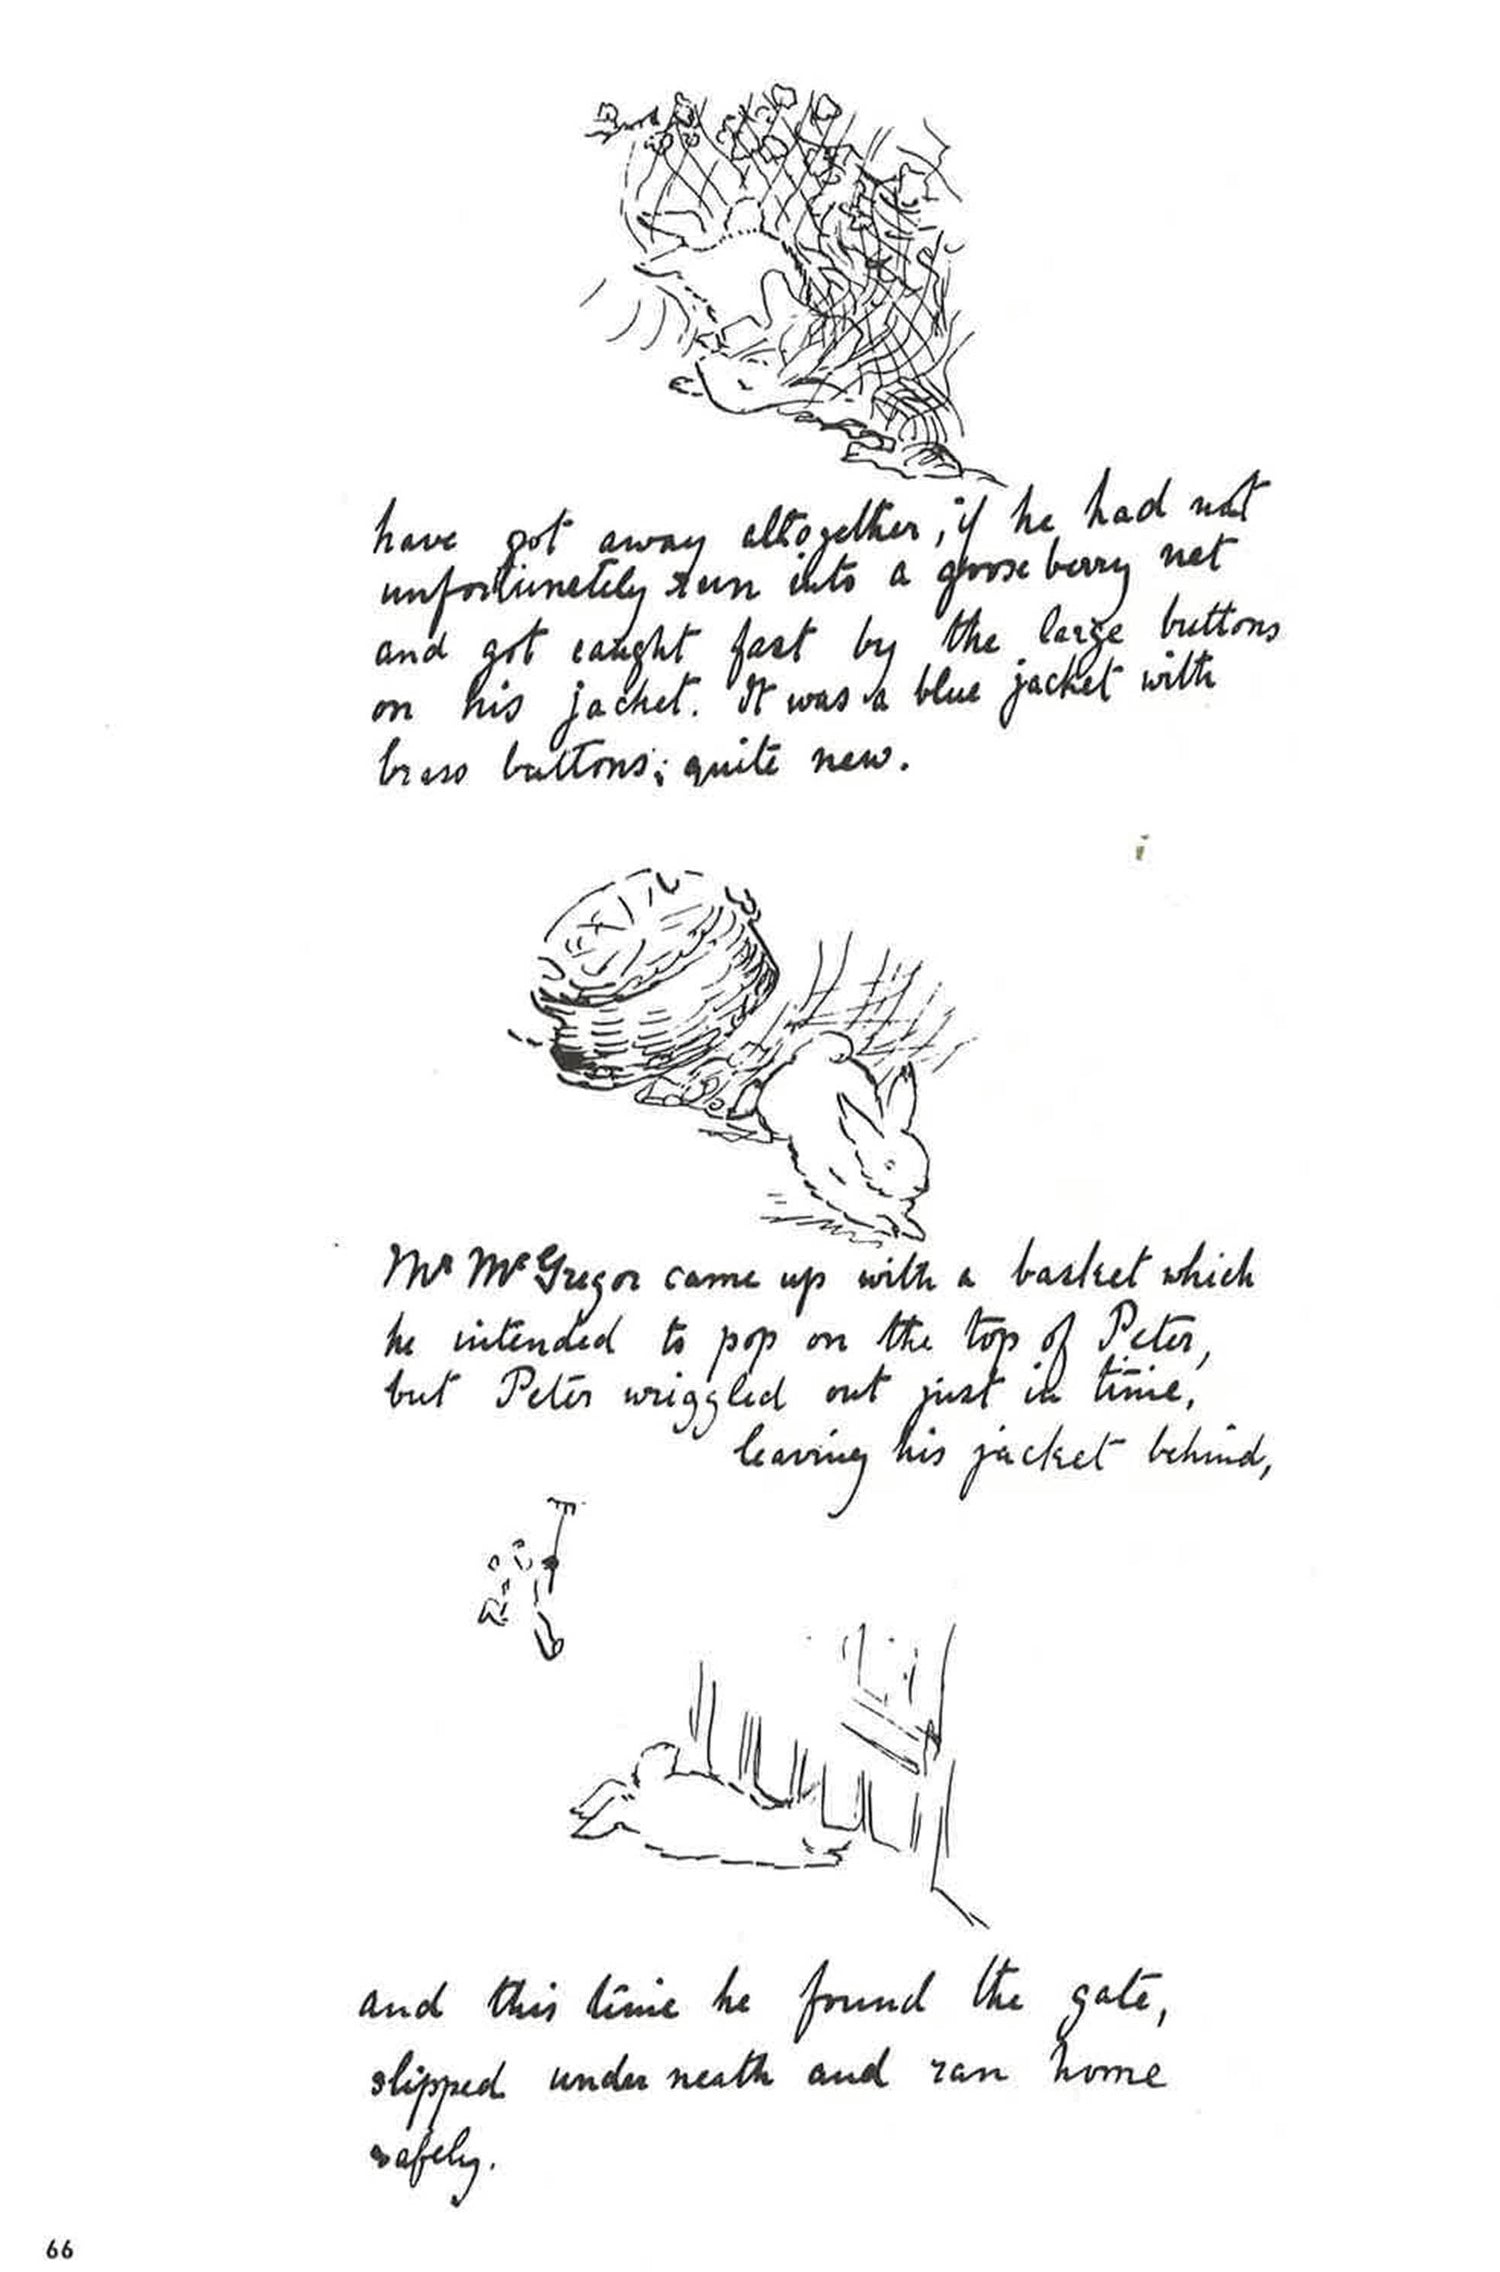 have got away altogether, if he had not
unfortunately run into a gooseberry net
and got caught fast by the large buttons
on his jacket. It was a blue jacket with
brass buttons; quite new.
Mr McGregor came up with a basket which
he intended to pop on the top of Peter,
but Peter wriggled out just in time,
leaving his jacket behind,
and this time he found the gate,
slipped underneath and ran home
safely.
66